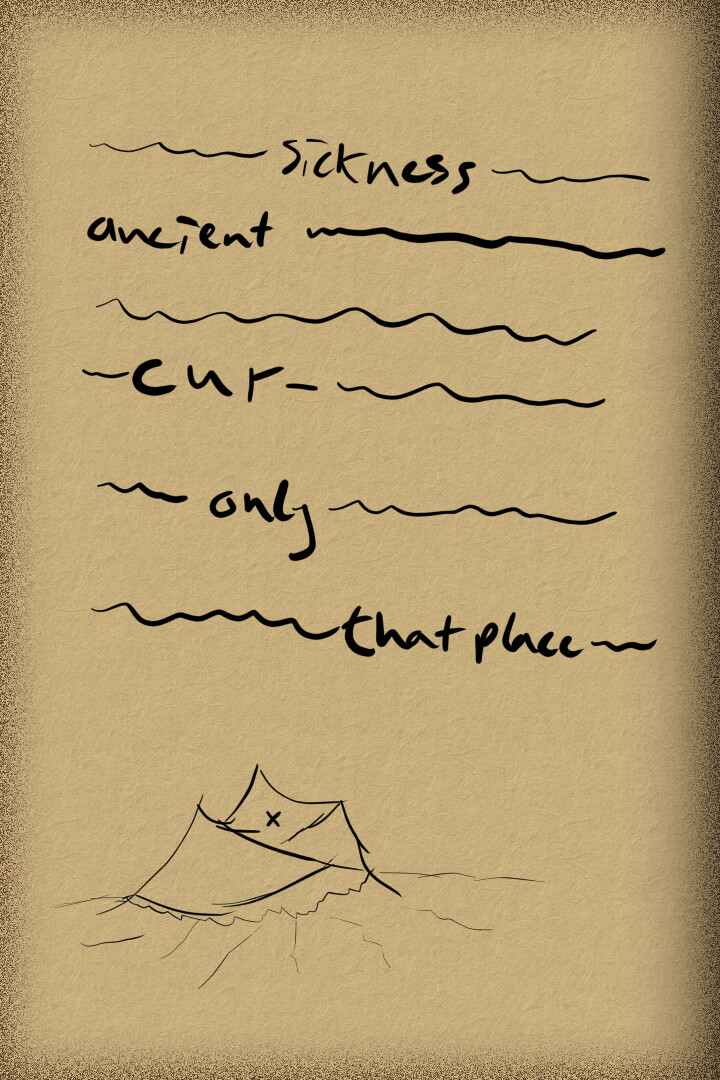 sickness
ancient
cur-
only
that place
x